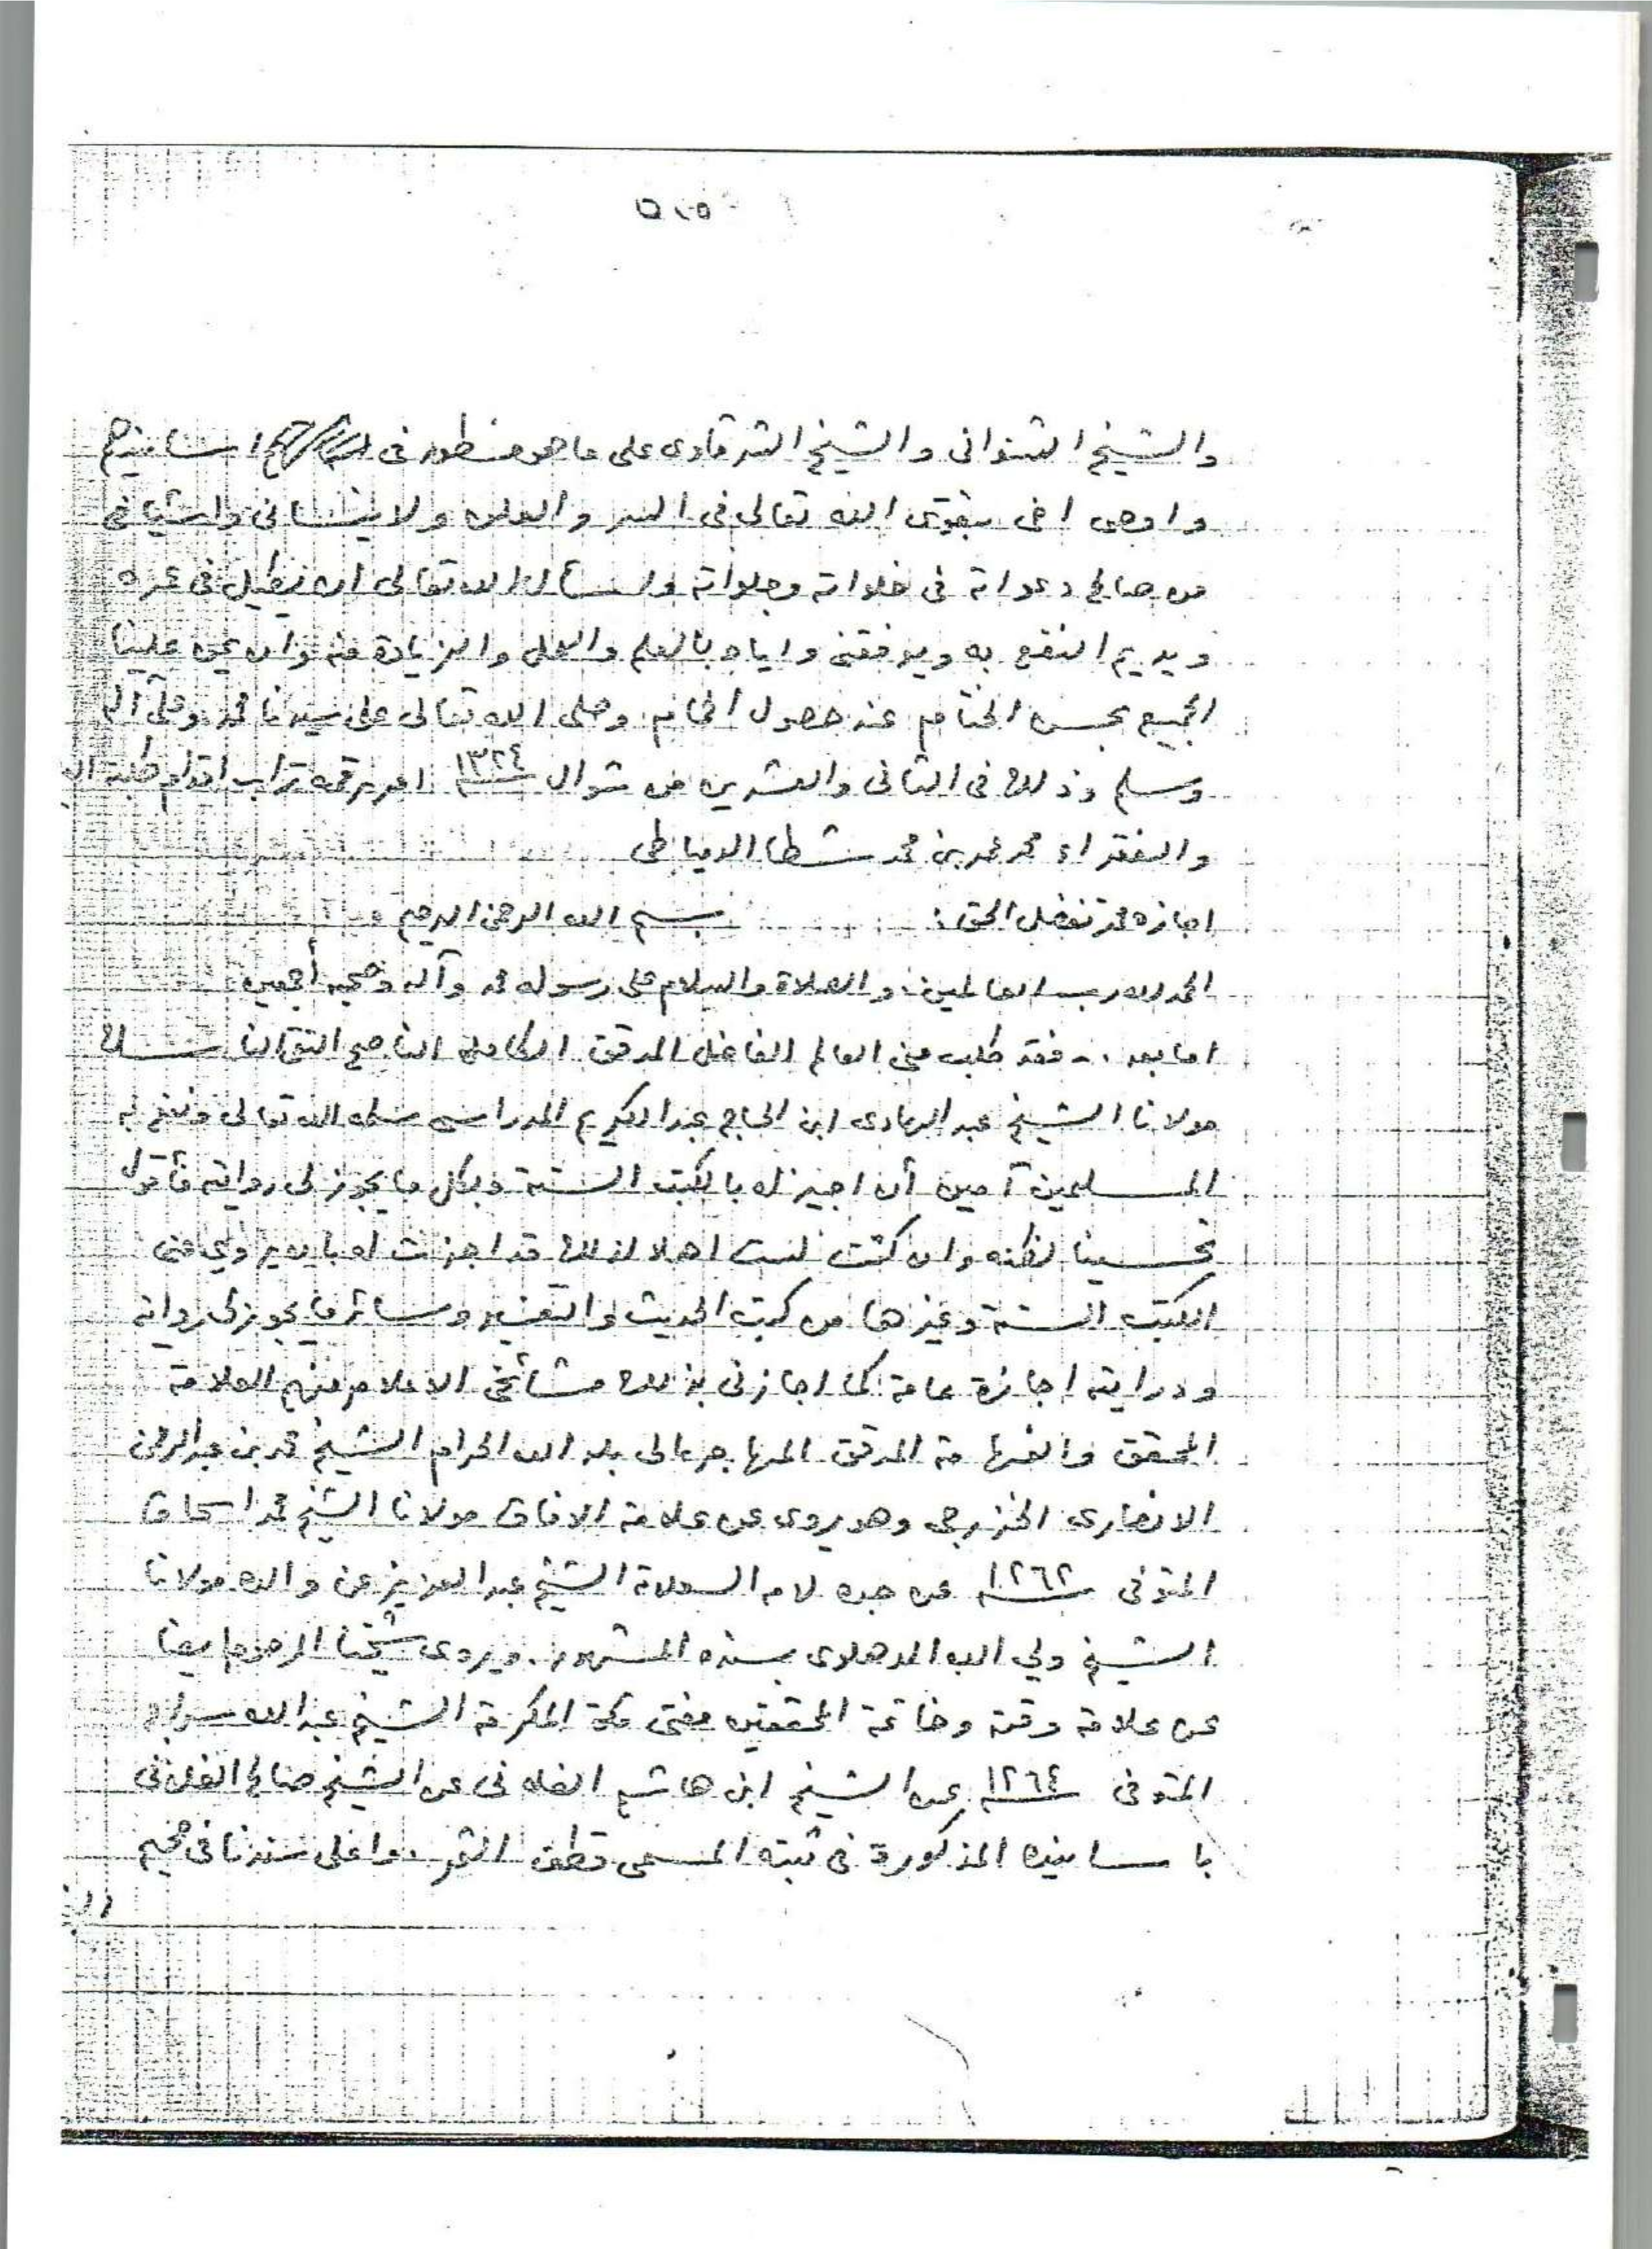 والشيخ الشنوانى والشيخ الشرقاوى على ما هو منظور فى اسانيدهم
واوصى اخى بتقوى الله تعالى فى السر والعلن ولا ينسانى واشياخى
من صالح دعواته فى خلواته وجلواته واسأل الله تعالى ان يطيل فى عمره
ويديم النفع به ويوفقنى واياه بالعلم والعمل والزيادة منه وان يمن علينا
الجميع بحسن الختام عند حصول الحمام وصلى الله تعالى على سيدنا محمد وعلى آله
وسلم وذلك فى الثانى والعشرين من شوال ١٣٢٤ امر برقمه تراب اقدام طلبة
والفقراء محمد عمر بن محمد شطا الدمياطى
اجازه محمد تفضل الحق : بسم الله الرحمن الرحيم
الحمد لله رب العالمين والصلاة والسلام على رسوله محمد وآله وصحبه أجمعين
اما بعد .. فقد طلب منى العالم الفاضل المدقق الكامل الناصح التقى الناسك
مولانا الشيخ عبد الهادى ابن الحاج عبد الكريم المدراسى سلمه الله تعالى ونفع به
المسلمين آمين أن اجيز له بالكتب الستة وبكل ما يجوز لى روايته فأقول
تحسينا لظنه وان كنت لست اهلا لذلك قد اجزت له بان يروي عنى
الكتب الستة وغيرها من كتب الحديث والتفسير وسائر ما يجوز لى روايته
ودرايته اجازة عامة كما اجازنى بذلك مشائخى الاعلام منهم العلامة
المحقق والفهامة المدقق المهاجر الى بلد الله الحرام الشيخ محمد بن عبد الرحمن
الانصارى الخزرجى وهو يروى عن علامة الافاق مولانا الشيخ محمد اسحاق
المتوفى ١٢٦٢ عن جده لامه العلامة الشيخ عبد العزيز عن والده مولانا
الشيخ ولي الله الدهلاوى بسنده المشهور . ويروى شيخنا المرحوم ايضا
عن علامة وقته وخاتمة المحققين مفتى مكة المكرمة الشيخ عبد الله سراج
المتوفى ١٢٦٤ عن الشيخ ابن هاشم الفلانى عن الشيخ صالح الفلانى
باسانيده المذكورة فى ثبته المسمى قطف الثمر . واعلى سندنا فى صحيح